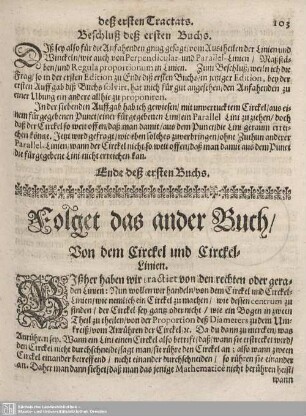 deß ersten Tractats.
103
Beschluß deß ersten Buchs.
Diß sey also für die Anfahenden gnug gesagt/ vom Austheilen der Linien und
Winckeln/ wie auch von Perpendicular- und Parallel-Linien/
und Regula proportionum in Linien. Zum Beschluß/ weiln ich die
Frag/ so in der ersten Edition zu Ende diß ersten Buchs in jetziger Edition, bey der
ersten Auffgab diß Buchs solvirt, hat mich für gut angesehen/ den Anfahenden zu
einer Ubung ein anders allhie zu proponiren.
In der siebenden Auffgab hab ich gewiesen/ mit unverrucktem Circkel/ aus ei-
nem fürgegebenen Punct/ einer fürgegebenen Lini/ ein Parallel Lini zu ziehen/ doch
daß der Circkel so weit offen/ daß man damit/ aus dem Punct/ die Lini geraum errei-
chen könte. Jetzt wird gefragt/ wie eben solches zuverbringen/ ohne Zuthun anderer
Parallel-Linien/ wann der Circkel nicht so weit offen/ daß man damit aus dem Punct
die fürgegebene Lini nicht erreichen kan.
Ende deß ersten Buchs.
Folget das ander Buch/
Von dem Circkel und Circkel-
Linien.
Bißher haben wir tractirt von den rechten oder gera-
den Linien: Nun wollen wir handeln/ von dem Circkel und Circkel-
Linien/ wie nemlich ein Circkel zu machen/ wie dessen centrum zu
finden/ der Circkel sey gantz oder nicht/ wie ein Bogen in zween
Theil zu theilen/ von der Proportion deß Diameters zu dem Um-
kreiß/ vom Anrühren der Circkel/ &c. Da du dann zu mercken/ was
Anrühren sey. Wann ein Lini einen Circkel also betrifft/ daß/ wann sie erstreckt wird/
den Circkel nicht durchschneidet/ sagt man/ sie rühre den Circkel an; also wann zween
Circkel einander betreffend/ nicht einander durchschneiden/ so rühren sie einander
an. Daher man dann siehet/ daß man das jenige Mathematicè nicht berühren heist/
wann